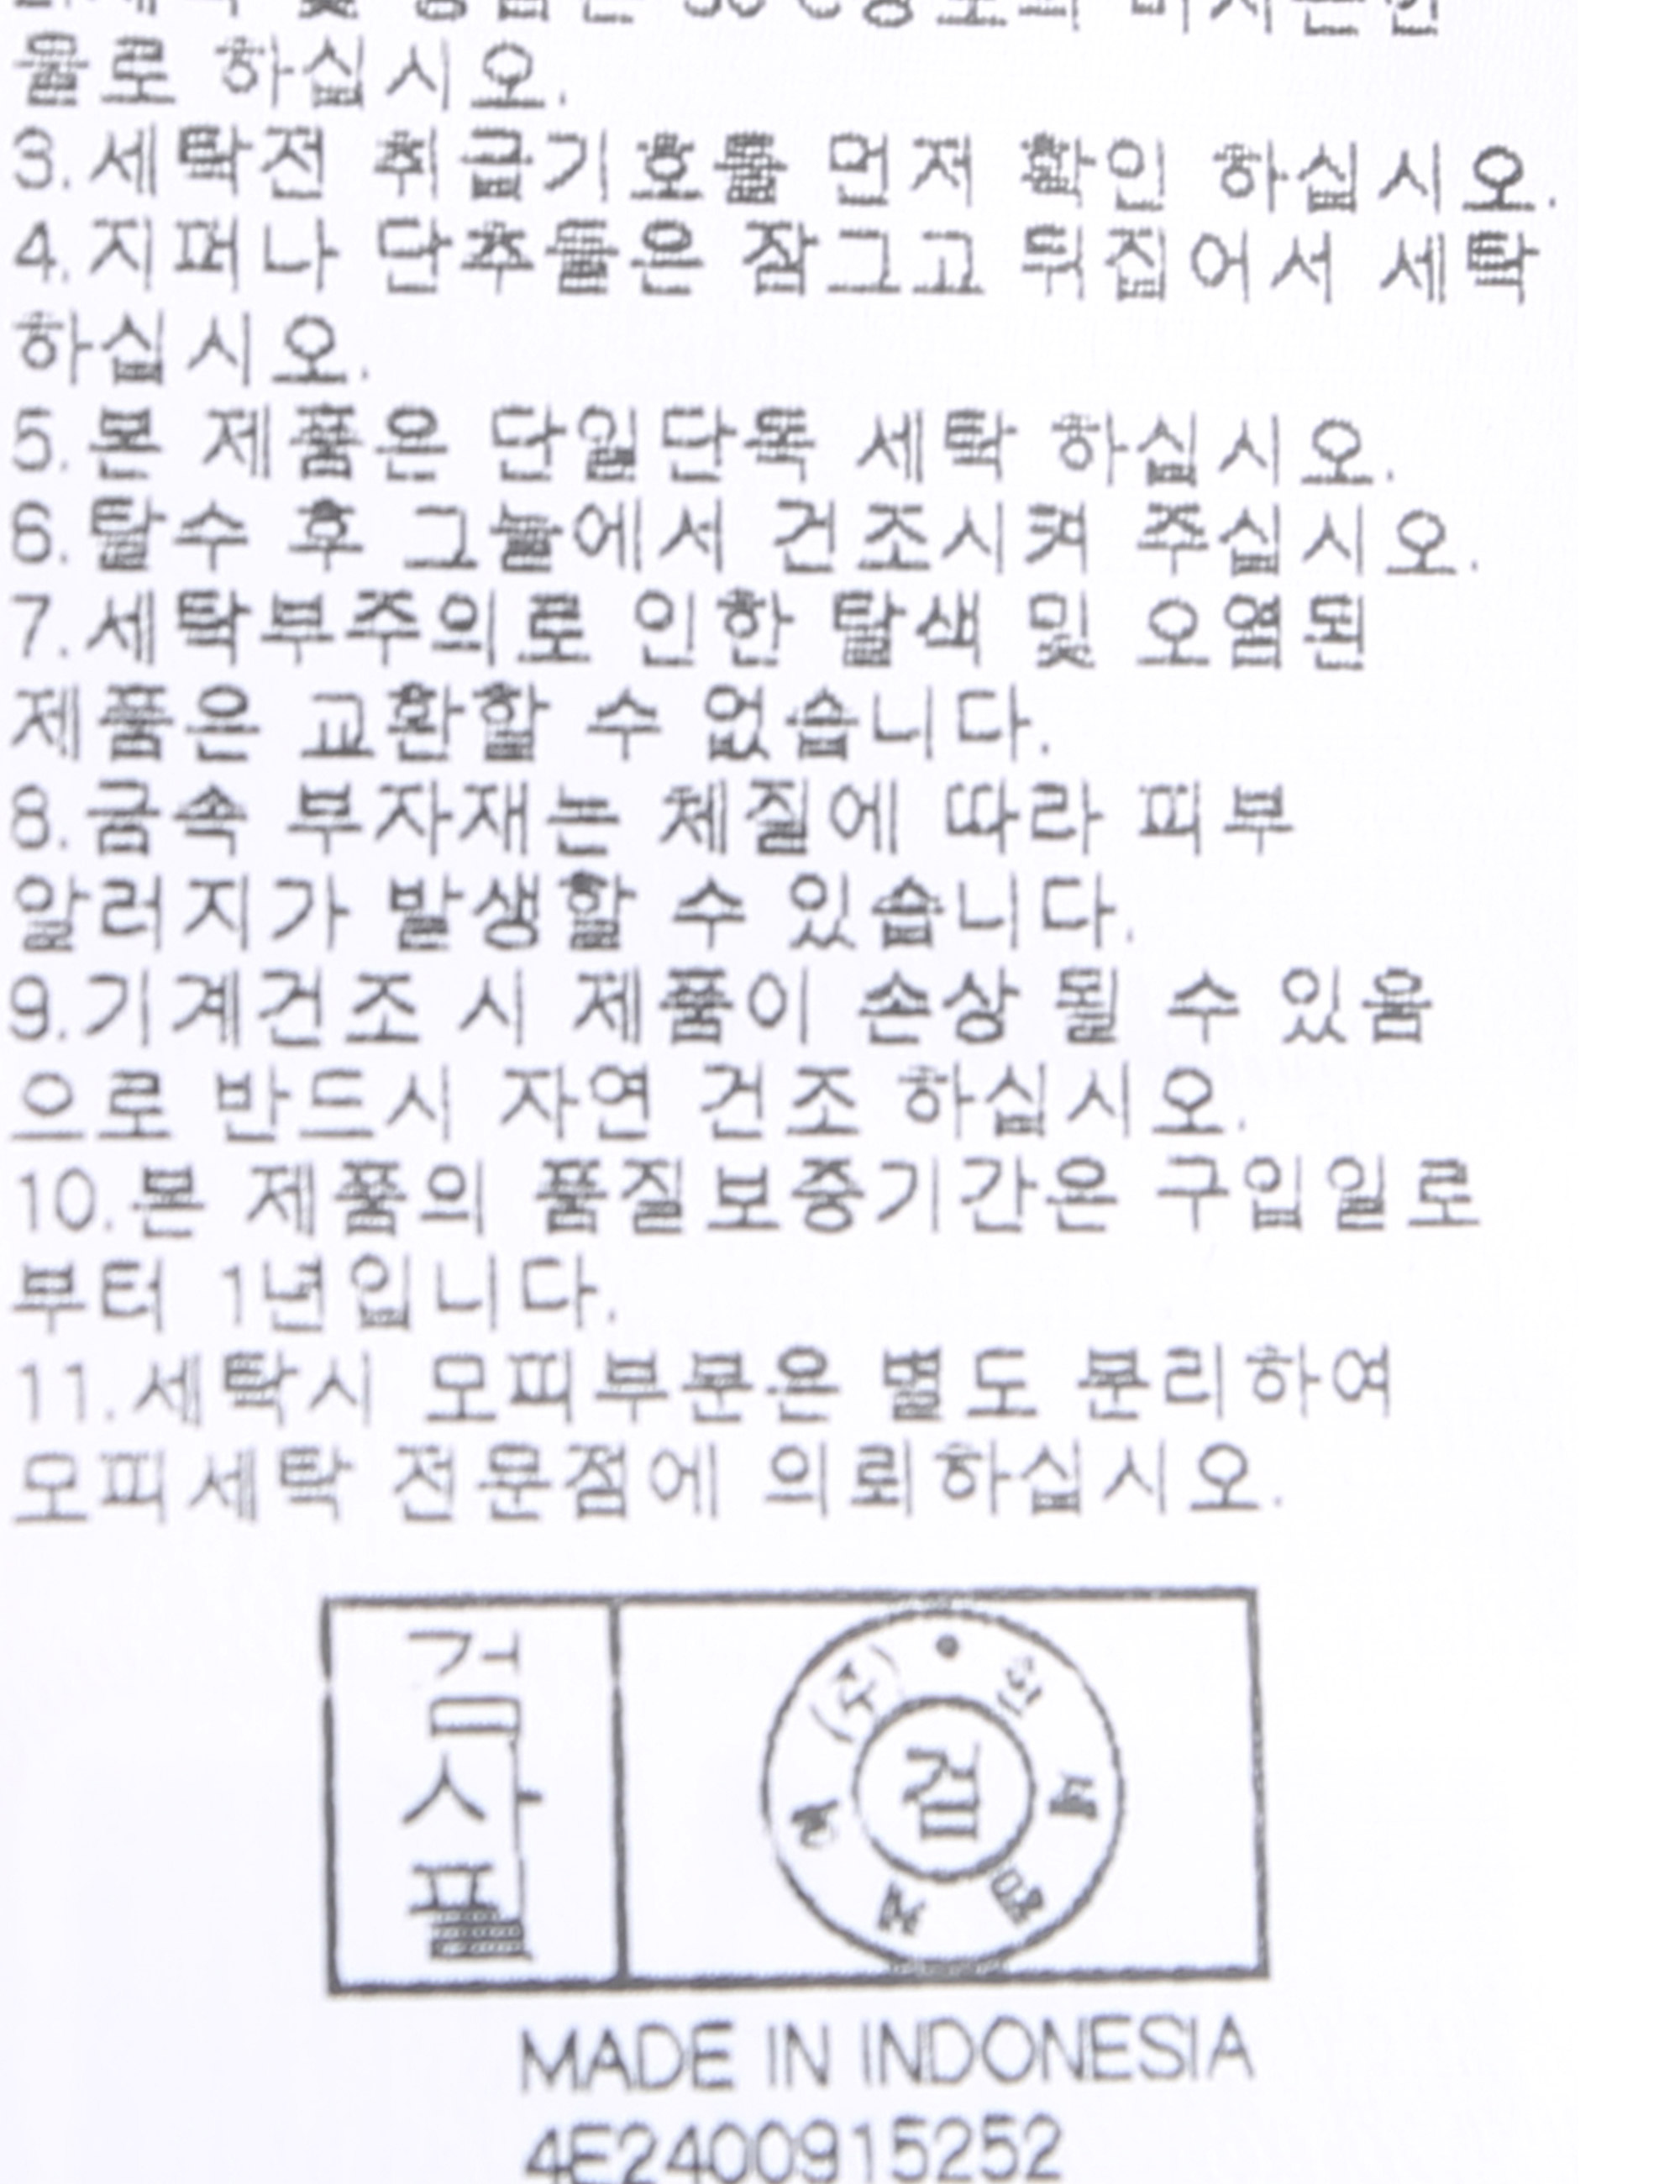 물로 하십시오.
3.세탁전 취급기호를 먼저 확인 하십시오.
4.지퍼나 단추들은 잠그고 뒤집어서 세탁
하십시오.
5.본 제품은 단일단독 세탁 하십시오.
6.탈수 후 그늘에서 건조시켜 주십시오.
7.세탁부주의로 인한 탈색 및 오염된
제품은 교환할 수 없습니다.
8.금속 부자재는 체질에 따라 피부
알러지가 발생할 수 있습니다.
9.기계건조 시 제품이 손상 될 수 있음
으로 반드시 자연 건조 하십시오.
10.본 제품의 품질보증기간은 구입일로
부터 1년입니다.
11.세탁시 모피부분은 별도 분리하여
모피세탁 전문점에 의뢰하십시오.
검사필
검
MADE IN INDONESIA
4E2400915252